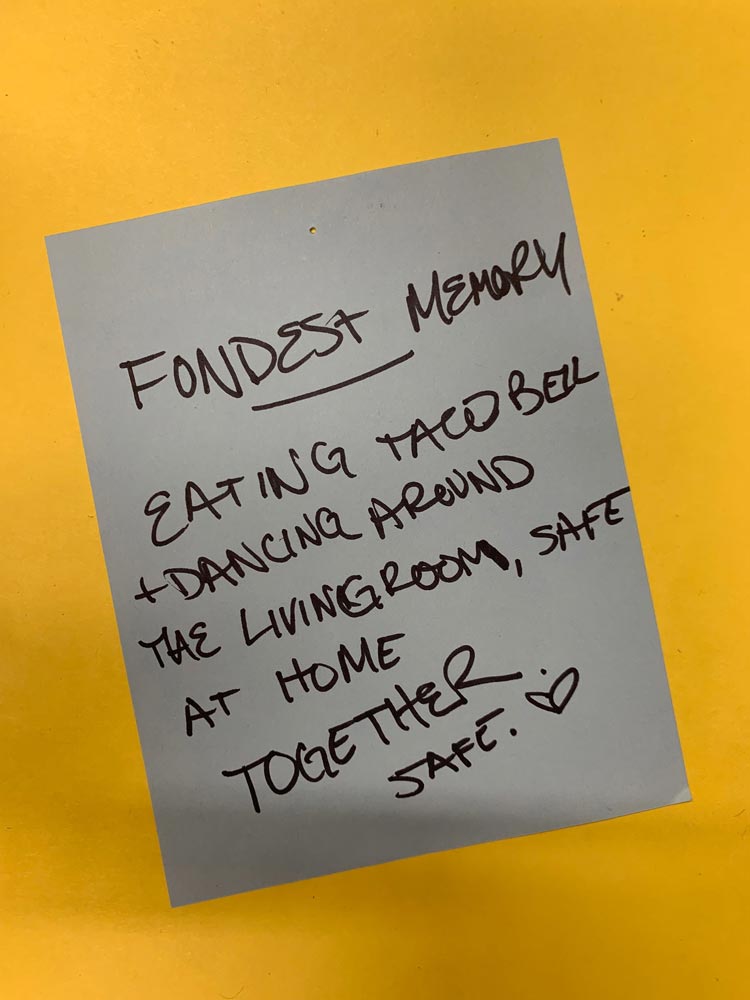 FONDEST MEMORY
EATING TACO BELL
+ DANCING AROUND
THE LIVINGROOM, SAFE
AT HOME
TOGETHER.
SAFE. ♡